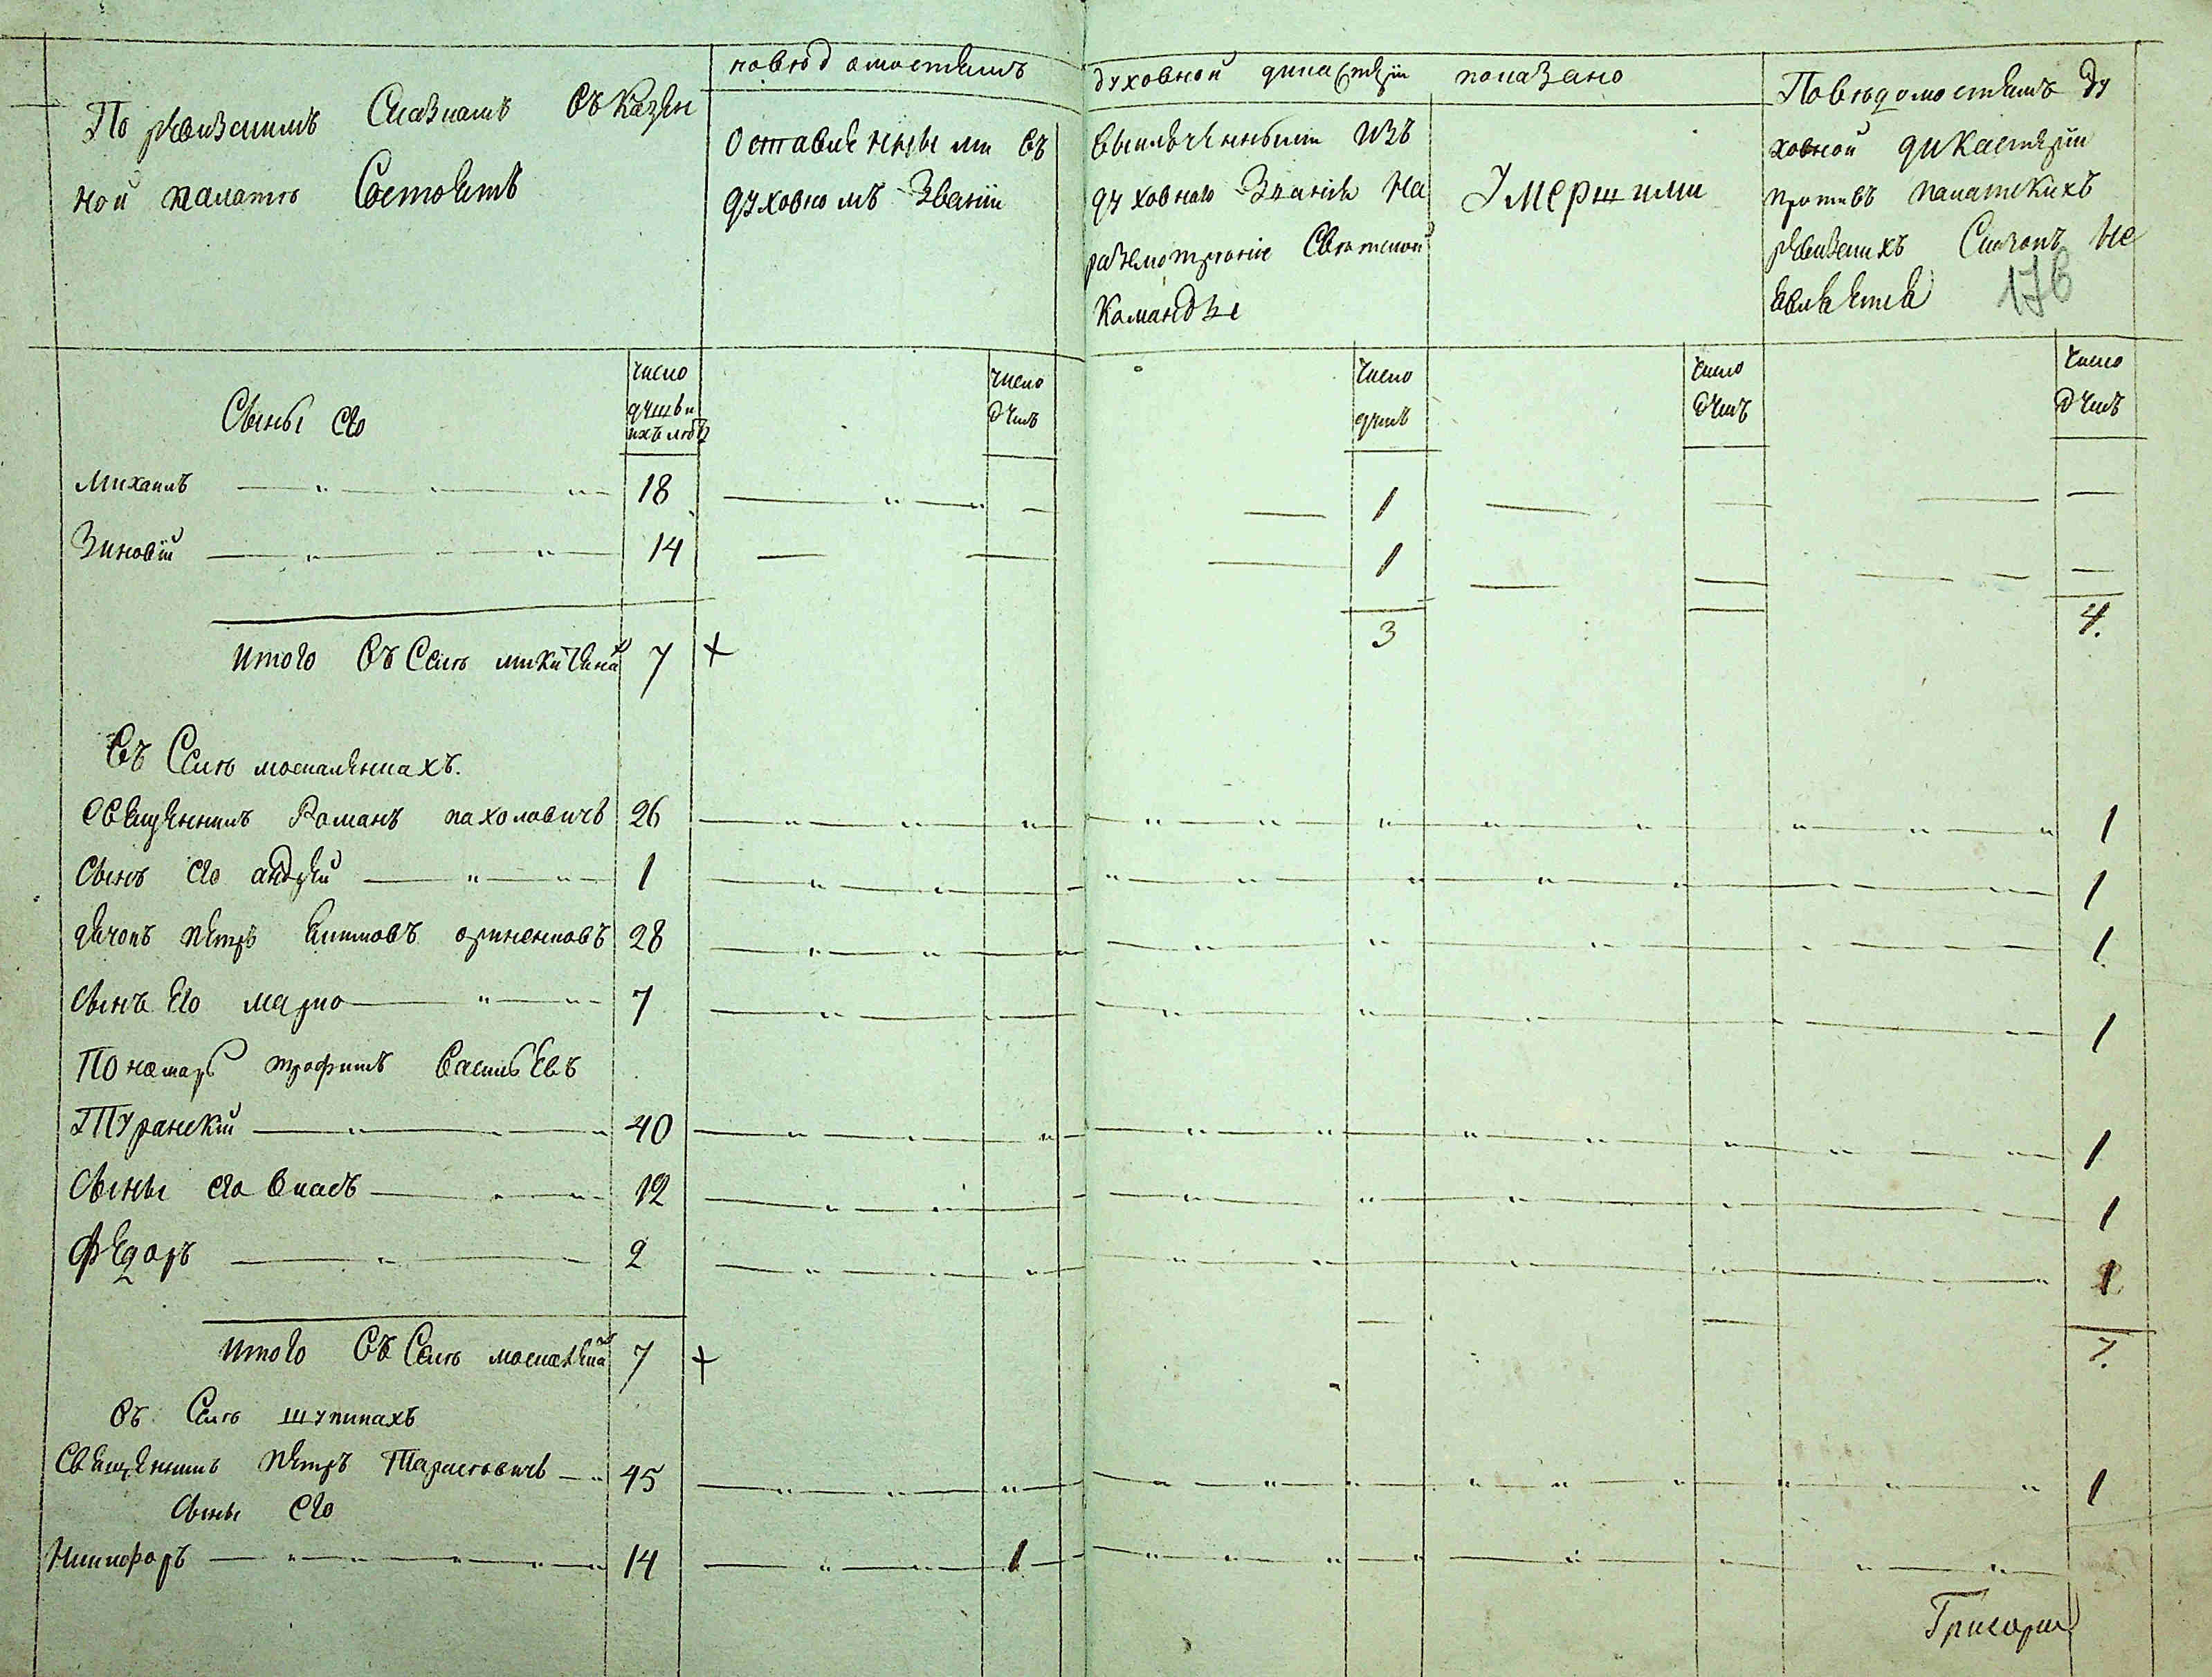 По ревизскимъ Сказкамъ Въ Казен
ной палате Состоитъ
поведомостямъ
духовной дикастерïи показано
Оставленными въ
духовномъ Званïи
выключенными изъ
духовнаго Званïя На
разсмотренïе Светской
Командъ
Умершими
Поведомостямъ ду
ховной дикастерïи
противъ палатскихъ
ревизскихъ Сказокъ Не
является
176
Сыны Его
число
душъ и
ихъ лета
число
душъ
число
душъ
число
душъ
число
душъ
Михаилъ 18 1
Зиновïй 14 1
Итого Въ Селе микитина 7 + 3 4.
Въ Селе москаленкахъ.
Священникъ Романъ пахоловичъ 26 1
Сынъ Его андрей 1 1
дячокъ петръ якимовъ ориненковъ 28 1
Сынъ Его марко 7 1
Пономарь трофимъ Васильевъ
Туранскïй 40 1
Сыны его Власъ 12 1
Федоръ 2 1
Итого Въ Селе москаленка 7 + 7.
Въ Селе щупикахъ
Священникъ петръ Тарасовичъ 45 1
Сыны Его
Никифоръ 14 1
Григорий